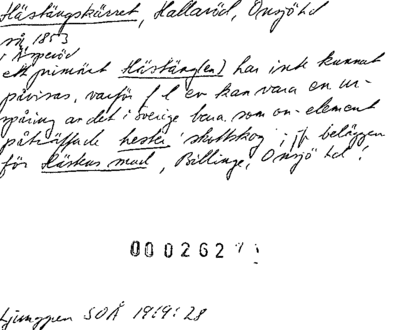 Hästängskärret, Hallaröd, Onsjö hd
nr 1853
i Äsperöd
ett primärt Hästäng(en) har inte kunnat
påvisas, varför f l er kan vara en ur-
spåring av det i övrige bara som on-element
påträffade hester skottskog; jfr beläggen
för Häskus mad, Billinge, Onsjö hd!
000262
Ljunggren SOÅ 1919: 28